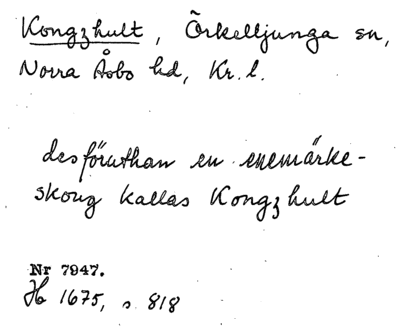 Kongzhult, Örkelljunga sn,
Norra Åsbo hd, Kr. l.
desföruthan en enemärke-
skoug kallas Kongzhult
Nr 7947.
Jb 1675, s. 818